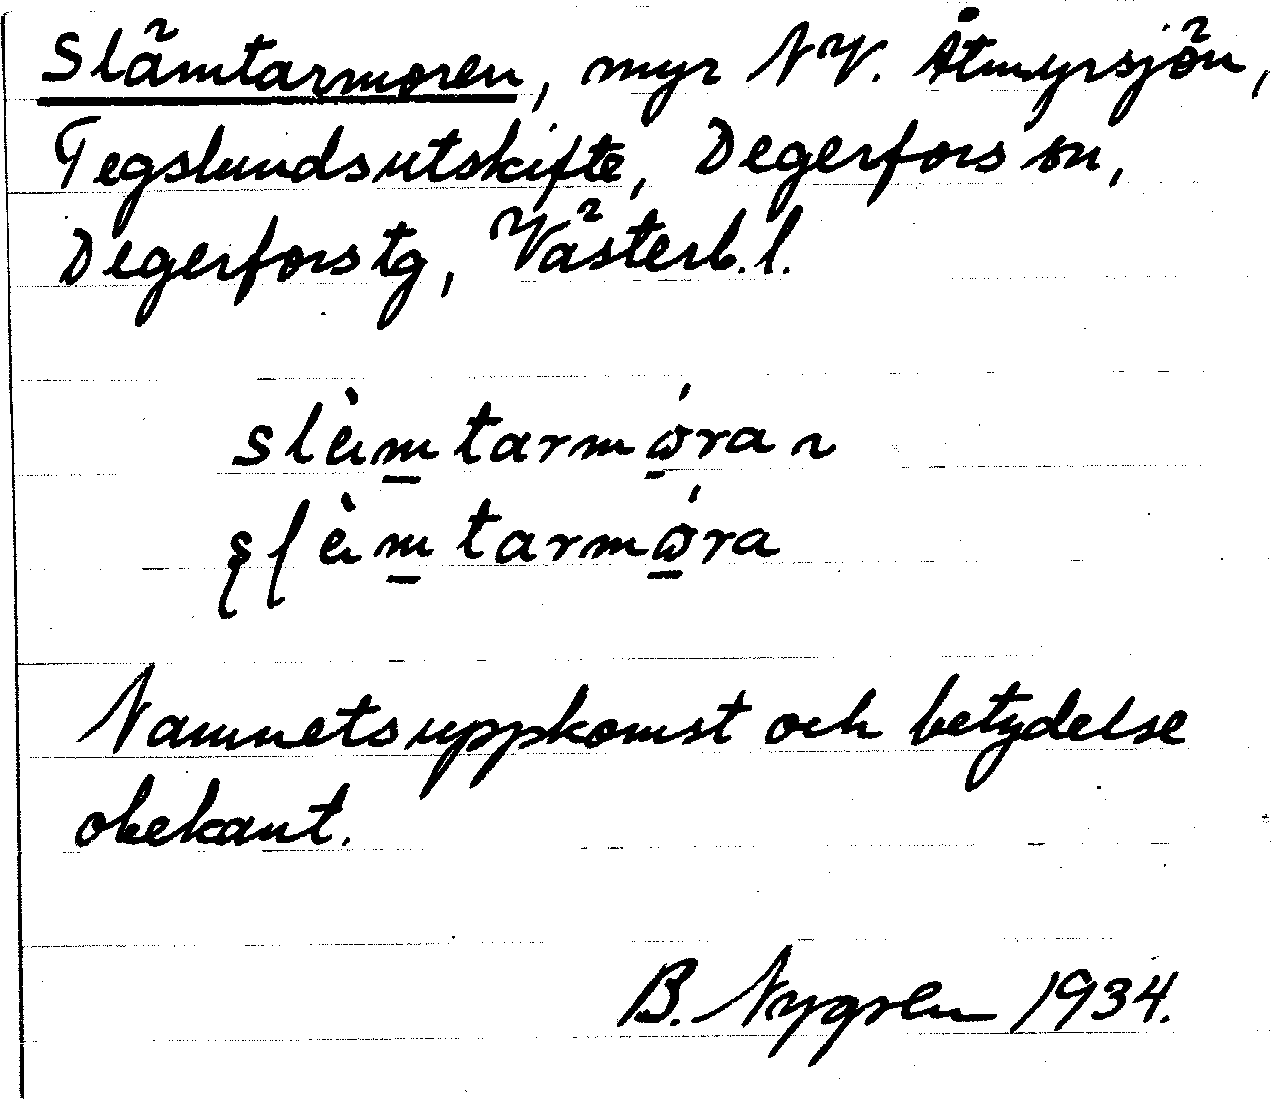 Slämtarmoren, myr NV. Åtmyrsjön,
Tegslundsutskifte, Degerfors sn,
Degerfors tg, Västerb. l.
Namnets uppkomst och betydelse
obekant.
B. Nygren 1934.